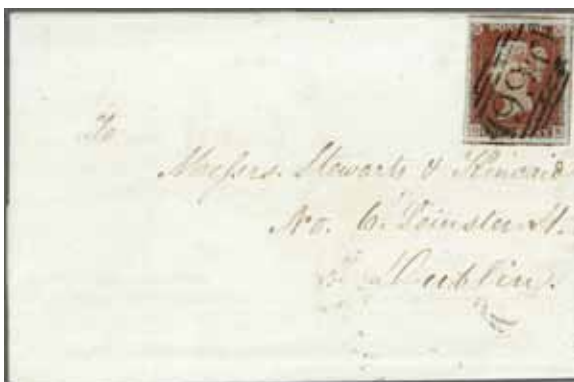 To
Messrs. Stewarts & Kincaid
No. 6. Leinster St.
Dublin.